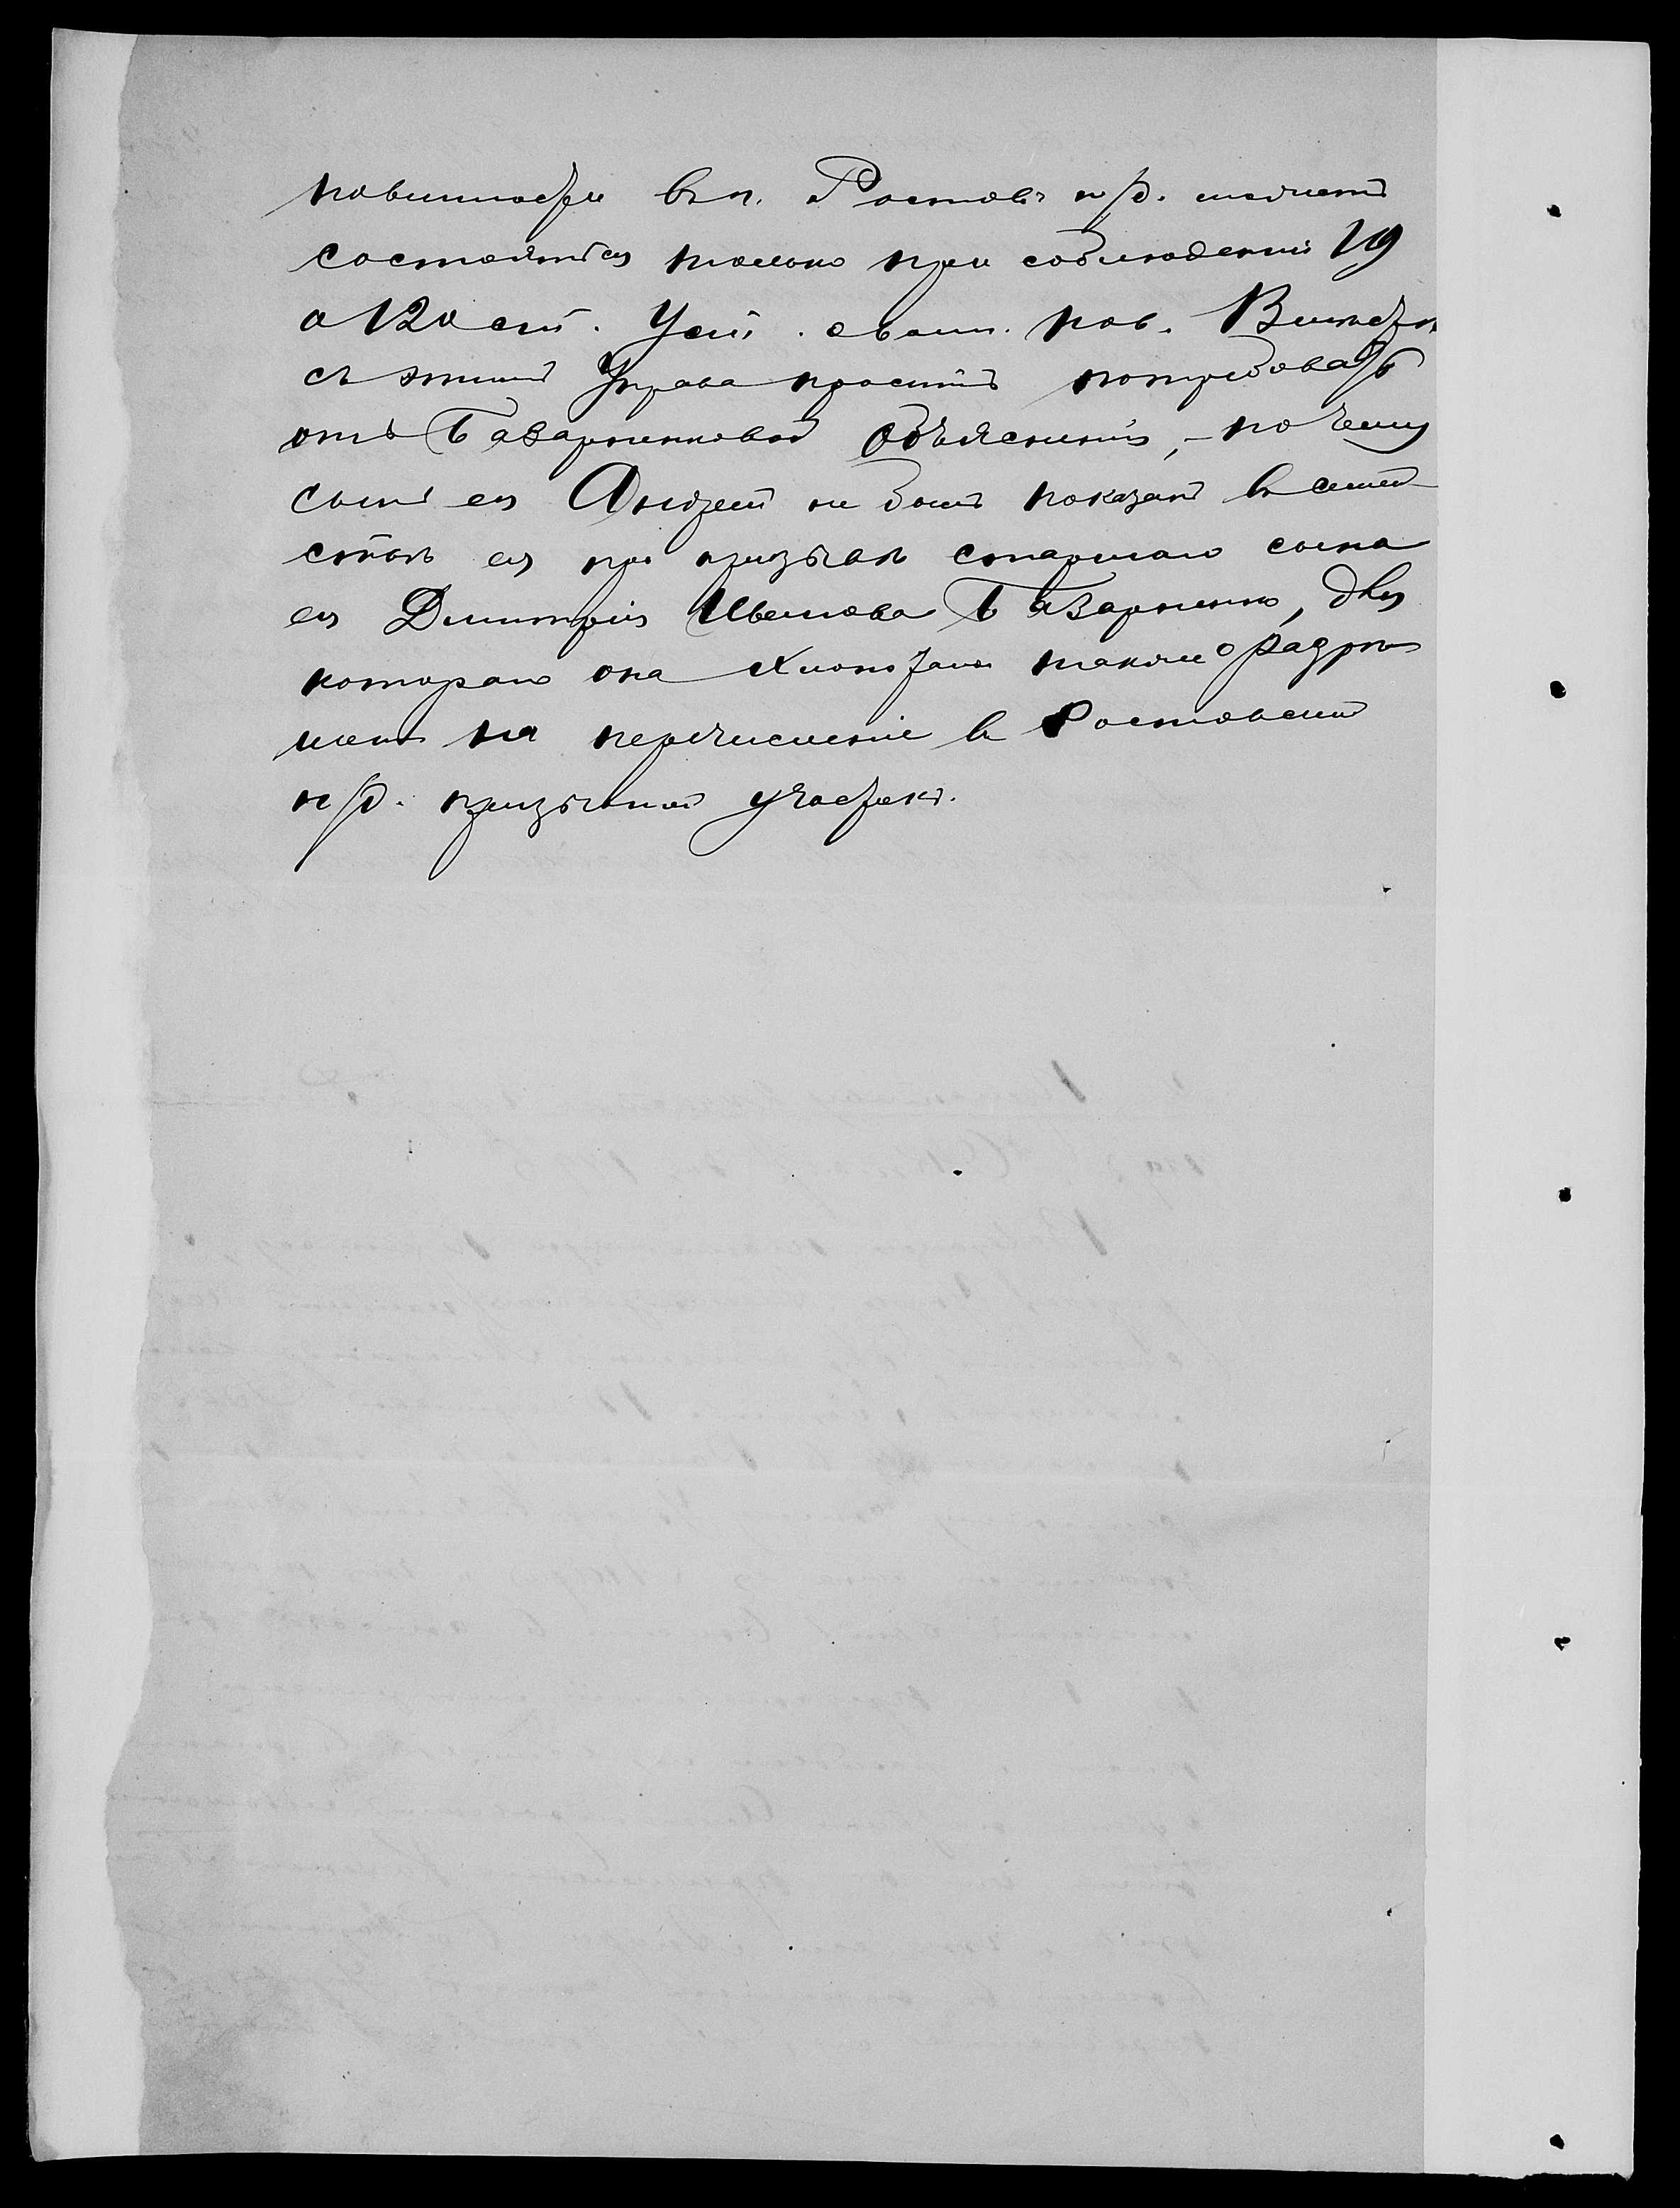 повинности въ г. Ростовѣ н/Д. можетъ
состоятся только при соблюденіи 119
и 120 ст. Уст. о воин. пов. Вмѣстѣ
съ этимъ Управа проситъ потребовать
отъ Базарненковой объясненія, – почему
сынъ ея Андрей не былъ показанъ въ семей
ствѣ ея при призывѣ старшаго сына
ея Димитрія Иванова Базарненко, для
котораго она хлопотала также о разрѣ
шеніи на перечисленіе въ Ростовскій
н/Д. призывной участокъ.